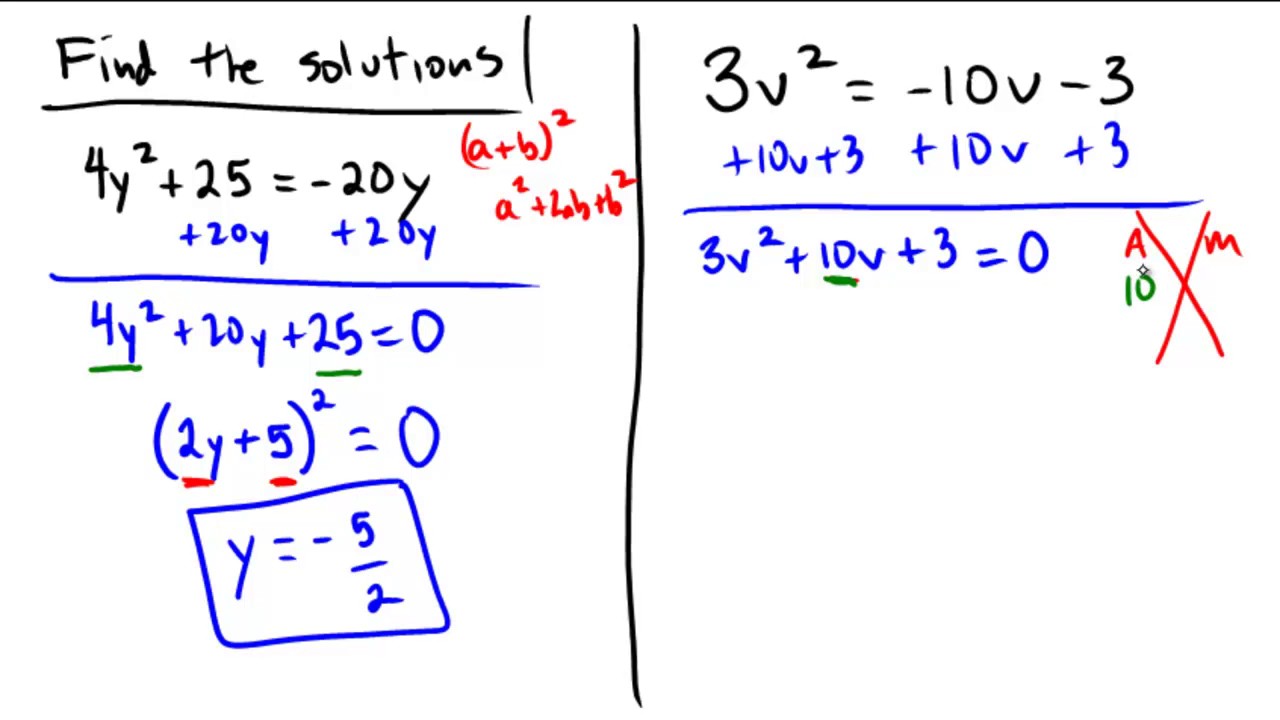 Find the solutions
4y² + 25 = -20y
+20y +20y
(a+b)²
a² + 2ab + b²
4y² + 20y + 25 = 0
(2y + 5)² = 0
y = - 5/2
3v² = -10v - 3
+10v +3 +10v +3
3v² + 10v + 3 = 0
A m
10